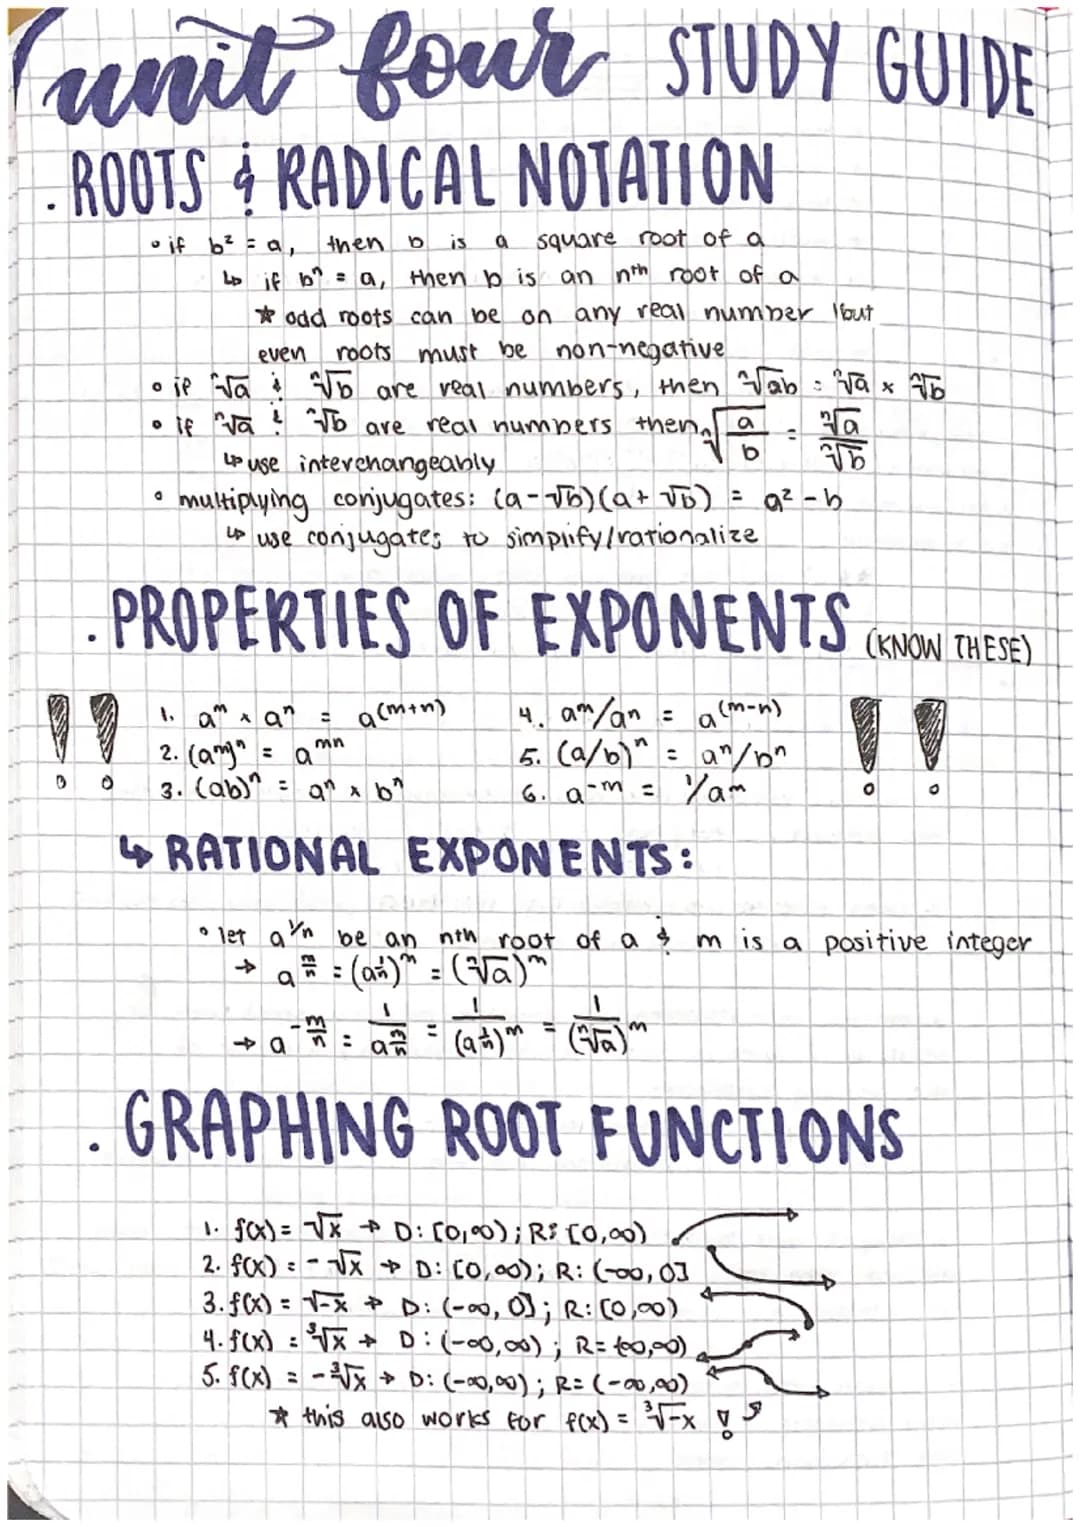 unit four STUDY GUIDE
. ROOTS & RADICAL NOTATION
• if b² = a, then b is a square root of a
↳ if bⁿ = a, then b is an nth root of a
* odd roots can be on any real number but
even roots must be non-negative
• if ⁿ√a & ⁿ√b are real numbers, then ⁿ√ab = ⁿ√a × ⁿ√b
• if ⁿ√a & ⁿ√b are real numbers then ⁿ√(a/b) = ⁿ√a/ⁿ√b
↳ use interchangeably
• multiplying conjugates: (a-√b)(a+√b) = a² - b
↳ use conjugates to simplify/rationalize
. PROPERTIES OF EXPONENTS (KNOW THESE)
!! 1. a^m × a^n = a^(m+n) 4. a^m/a^n = a^(m-n) !!
2. (a^m)^n = a^mn 5. (a/b)^n = a^n/b^n
3. (ab)^n = a^n × b^n 6. a^-m = 1/a^m
↳ RATIONAL EXPONENTS:
• let a^1/n be an nth root of a & m is a positive integer
→ a^(m/n) = (a^(1/n))^m = (ⁿ√a)^m
→ a^(-m/n) = 1/a^(m/n) = 1/(a^(1/n))^m = 1/(ⁿ√a)^m
. GRAPHING ROOT FUNCTIONS
1. f(x) = √x → D: [0,∞); R: [0,∞)
2. f(x) = -√x → D: [0,∞); R: (-∞,0]
3. f(x) = √-x → D: (-∞,0]; R: [0,∞)
4. f(x) = ³√x → D: (-∞,∞); R= (-∞,∞)
5. f(x) = -³√x → D: (-∞,∞); R= (-∞,∞)
* this also works for f(x) = ³√-x !